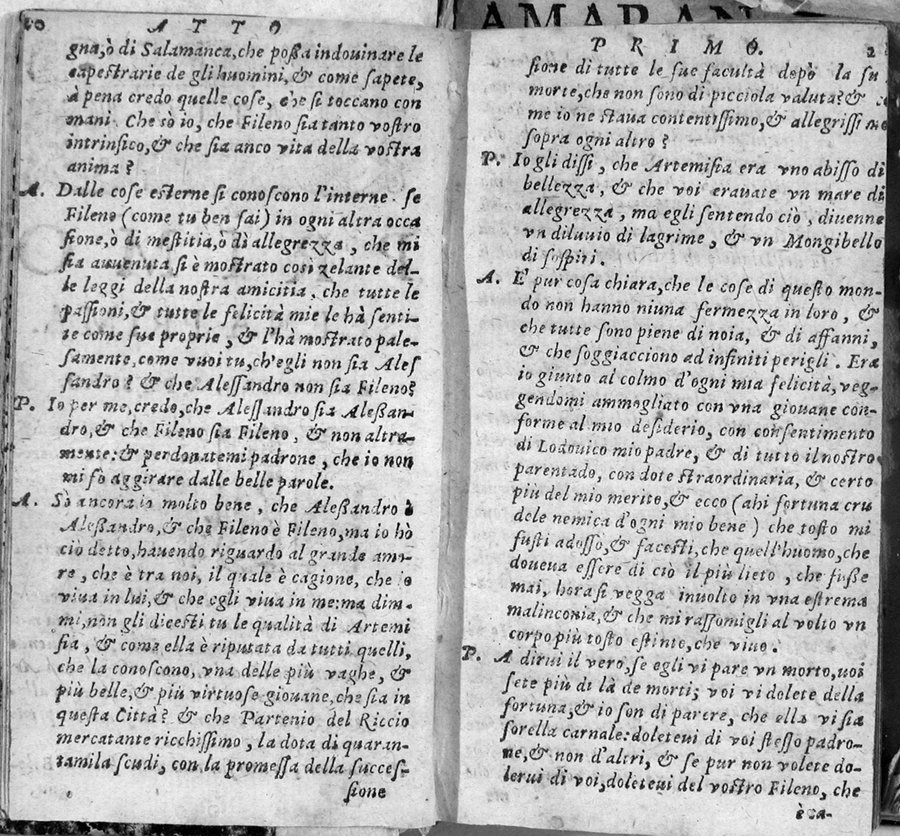 AMARAN
20 ATTO
gna,ò di Salamanca,che poßa indouinare le
capestrarie de gli huomini,& come sapete,
à pena credo quelle cose, che si toccano con
mani. Che sò io, che Fileno sia tanto vostro
intrinsico,& che sia anco vita della vostra
anima?
A. Dalle cose esterne si conoscono l'interne. se
Fileno (come tu ben sai) in ogni altra occa
sione,ò di mestitia,ò di allegrezza, che mi
sia auuenuta si è mostrato così zelante del-
le leggi della nostra amicitia, che tutte le
passioni,& tutte le felicità mie le hà senti-
te come sue proprie, & l'hà mostrato pale-
samente,come vuoi tu,ch'egli non sia Ales
sandro? & che Alessandro non sia Fileno?
P. Io per me,credo,che Alessandro sia Aleßan-
dro,& che Fileno sia Fileno, & non altra-
mente:& perdonatemi padrone, che io non
mi fò aggirare dalle belle parole.
A. Sò ancora io molto bene, che Aleßandro è
Aleßandro,& che Fileno è Fileno,ma io hò
ciò detto,hauendo riguardo al grande amo-
re, che è tra noi, il quale è cagione, che io
viua in lui,& che egli viua in me:ma dim-
mi,non gli dicesti tu le qualità di Artemi
sia, & come ella è riputata da tutti quelli,
che la conoscono, vna delle più vaghe, &
più belle,& più virtuose giouane,che sia in
questa Città? & che Partenio del Riccio
mercatante ricchissimo, la dota di quaran-
tamila scudi, con la promessa della succes-
sione
PRIMO. 2
sione di tutte le sue facultà depò la su
morte,che non sono di picciola valuta?& co
me io ne staua contentissimo,& allegrissimo
sopra ogni altro?
P. Io gli dissi, che Artemisia era vno abisso di
bellezza, & che voi erauate vn mare di
allegrezza, ma egli sentendo ciò, diuenne
vn diluuio di lagrime, & vn Mongibello
di sospiri.
A. E' pur cosa chiara,che le cose di questo mon-
do non hanno niuna fermezza in loro, &
che tutte sono piene di noia, & di affanni,
& che soggiacciono ad infiniti perigli. Era
io giunto al colmo d'ogni mia felicità, veg-
gendomi ammogliato con vna giouane con-
forme al mio desiderio, con consentimento
di Lodouico mio padre, & di tutto il nostro
parentado, con dote straordinaria, & certo
più del mio merito,& ecco (ahi fortuna cru
dele nemica d'ogni mio bene) che tosto mi
fusti adosso,& facesti,che quell'huomo,che
doueua essere di ciò il più lieto, che fuße
mai, hora si vegga inuolto in vna estrema
malinconia,& che mi rassomigli al volto vn
corpo più tosto estinto, che viuo.
P. A dirui il vero,se egli vi pare vn morto,uoi
sete più di là de morti; voi vi dolete della
fortuna,& io son di parere, che ella vi sia
sorella carnale:doleteui di voi stesso padro-
ne,& non d'altri, & se pur non volete do-
lerui di voi,doleteui del vostro Fileno, che
è ca-